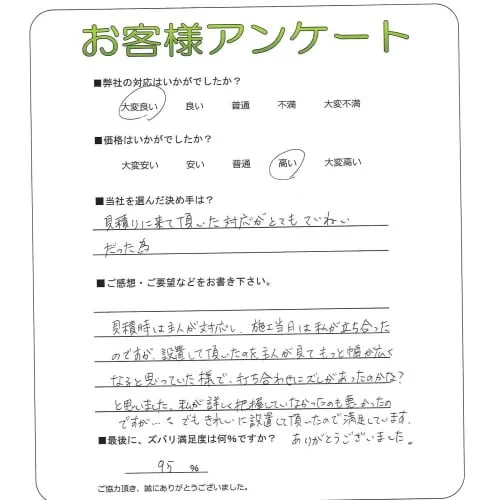 お客様アンケート
■弊社の対応はいかがでしたか？
大変良い 良い 普通 不満 大変不満
■価格はいかがでしたか？
大変安い 安い 普通 高い 大変高い
■当社を選んだ決め手は？
見積りに来て頂いた対応がとてもていねい
だった為
■ご感想・ご要望などをお書き下さい。
見積時は主人が対応し、施工当日は私が立ち合った
のですが、設置して頂いたのを主人が見てもっと幅が広く
なると思っていた様で、打ち合わせにズレがあったのかな？
と思いました。私が詳しく把握していなかったのも悪かったの
ですが…。でもきれいに設置して頂いたので満足しています。
ありがとうございました。
■最後に、ズバリ満足度は何%ですか？
95 %
ご協力頂き、誠にありがとうございました。